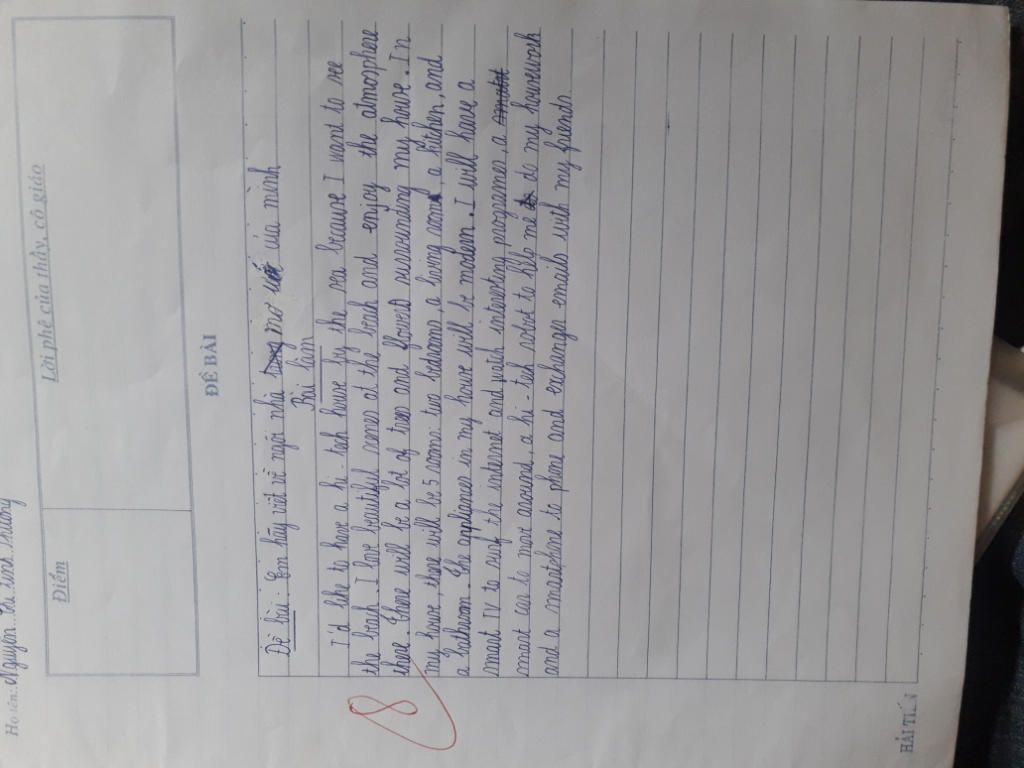 Họ tên: Nguyễn
Điểm
Lời phê của thầy, cô giáo
ĐỀ BÀI
Đề bài: Em hãy viết về ngôi nhà mơ ước của mình
Bài làm
I'd like to have a hi-teh house by the sea because I want to see
the beach. I hav beautiful scenes at the beach and enjoy the atmosphere
there. There will be a lot of trees and flowers surrounding my house. In
my house, there will be 5 rooms: two bedrooms, a living room, a kitchen, and
a bathroom. The appliances in my house will be modern. I will have a
smart TV to surf the internet and watch interesting programes a
smart car to move around, a hi-teh robot to hle me do my housework
and a smartphone to phone and exchange emails with my friends.
8
HẢI TIẾN